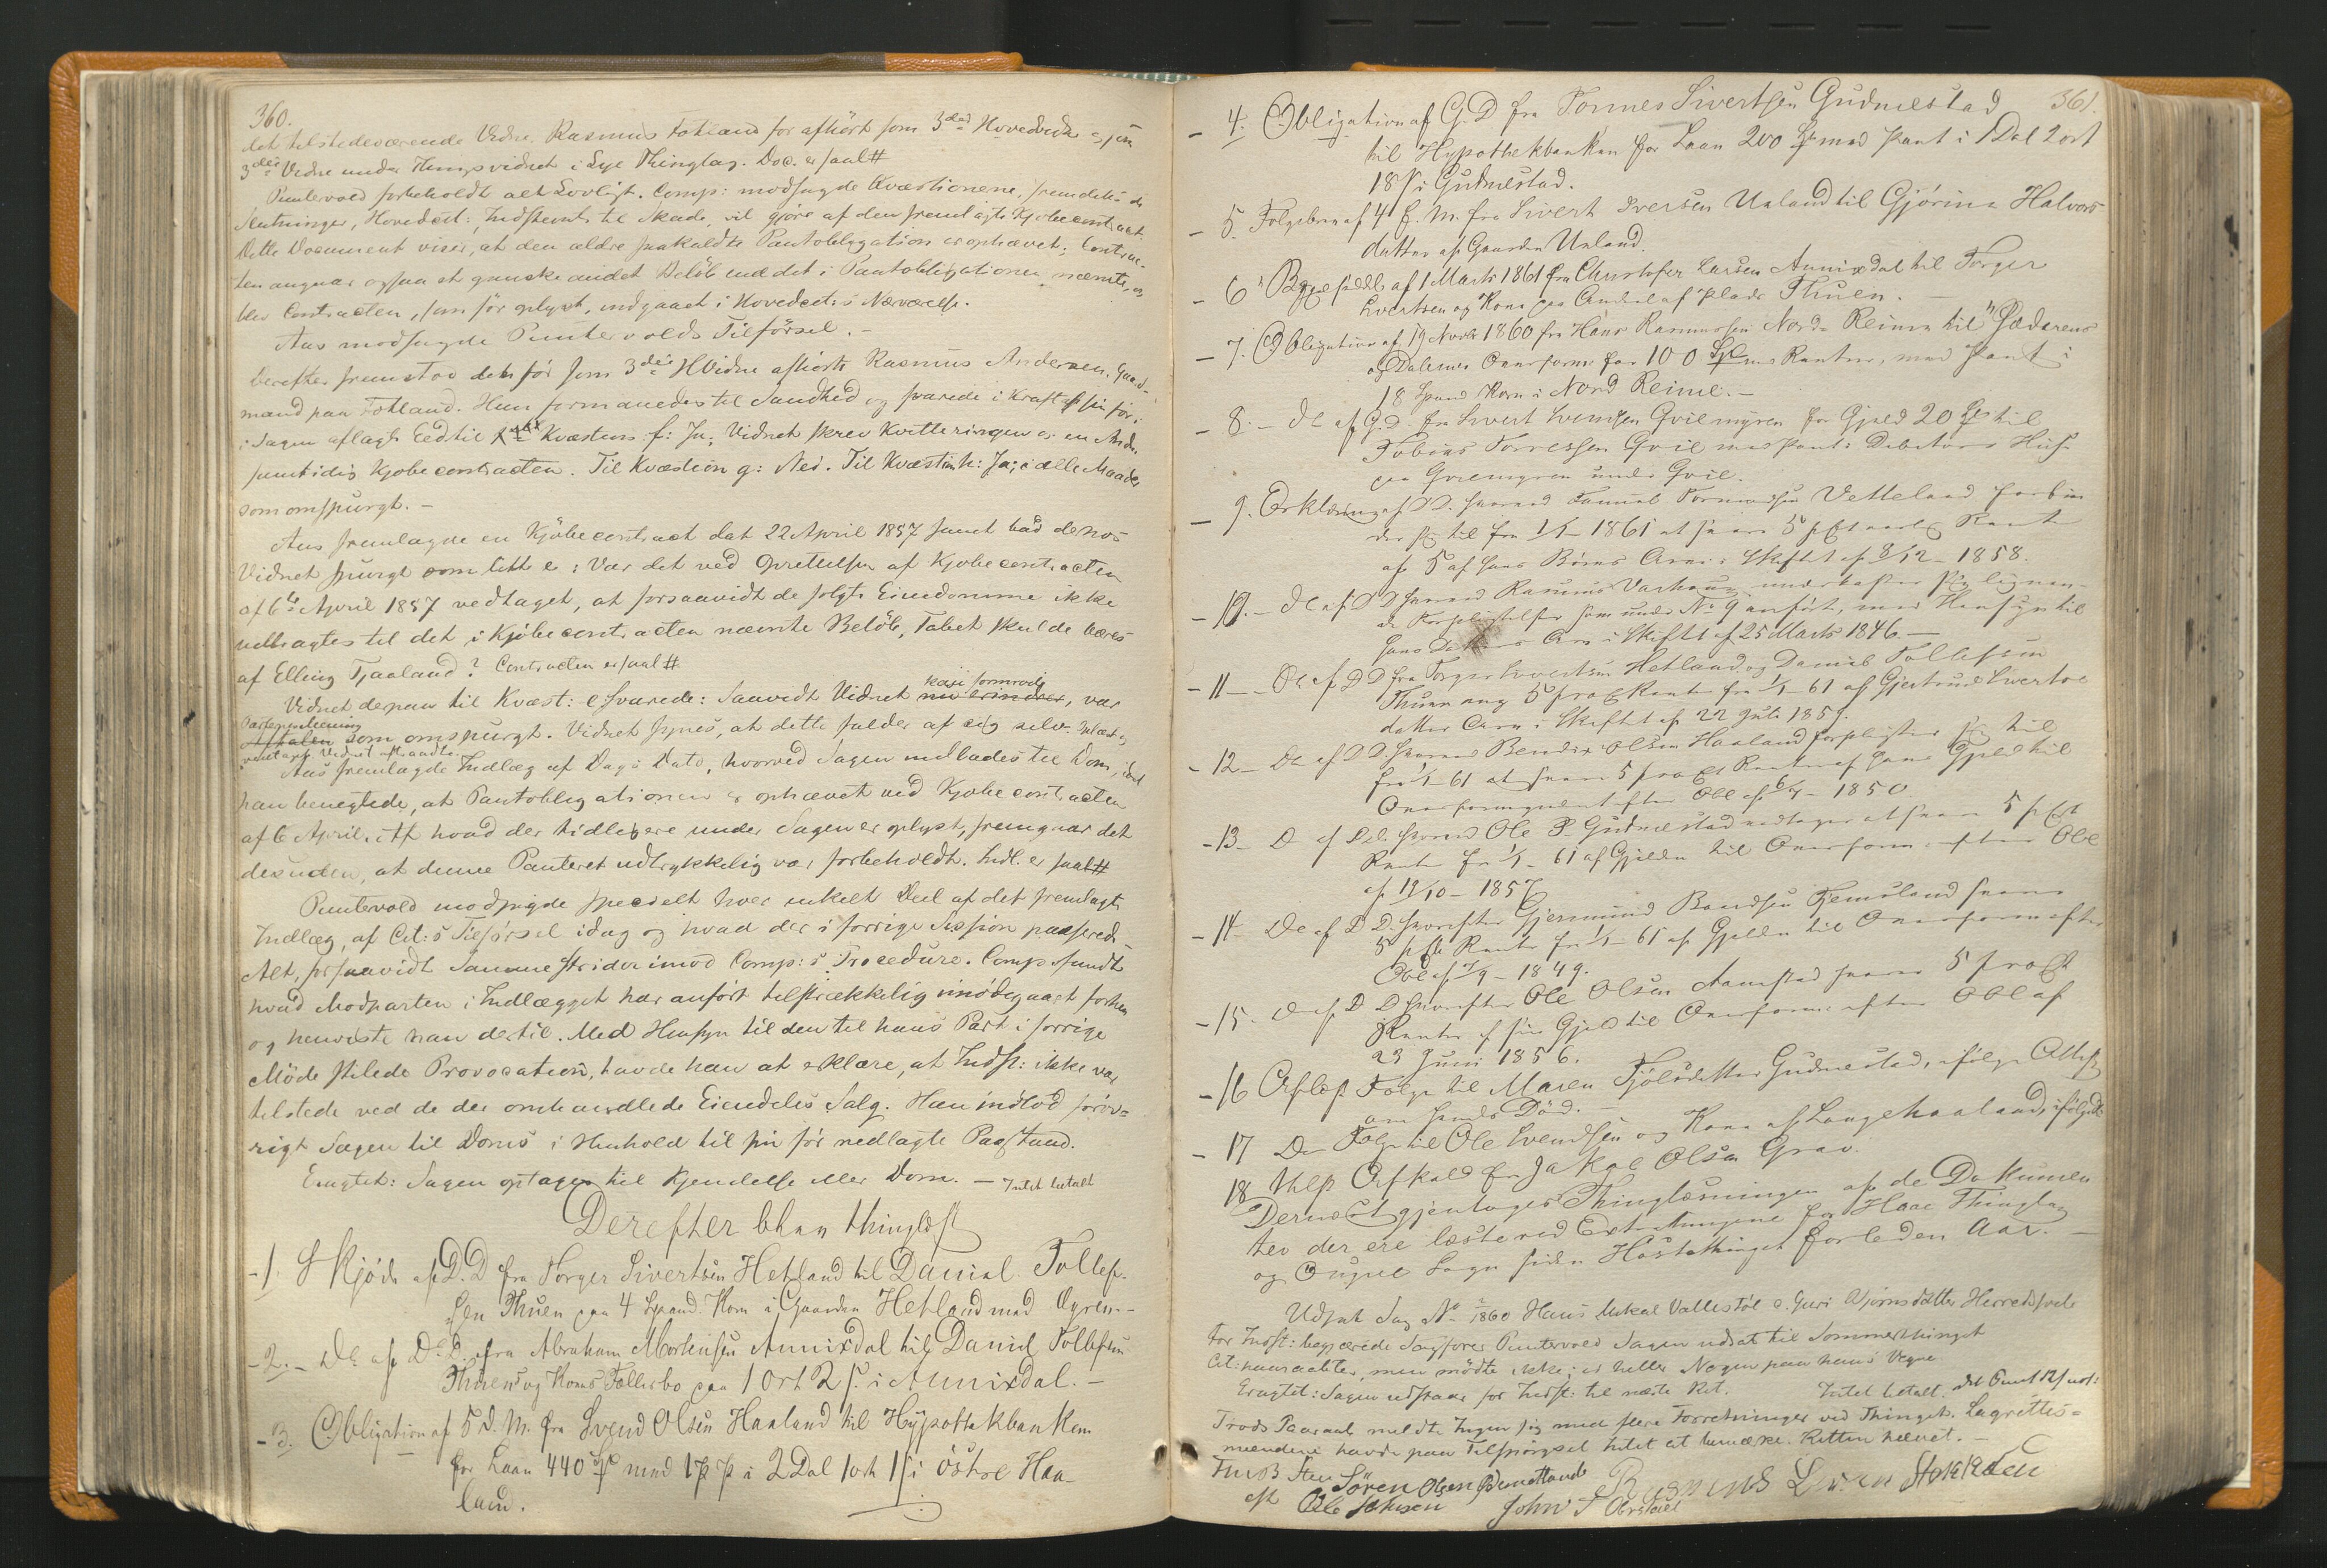 360.
det tilstedeværende Vidne Rasmus Fotland for afhört som 3die Hovedvidne og som
3die Vidne under Thingsvidnet i Lye Thinglag. Doc. er saal#
Puntervold forbeholdt alt Lovligt. Comp: modsagde Kvæstionerne, fremdeles de
Slutninger, Hovedcit: Indstevnte til Skade, vil gjöre af den fremlagte Kjøbecontract
Dette Document viser, at den ældre saakaldte Pantobligation er ophævet; Contrac-
ten angaar ogsaa et ganske andet Belöb end det i Pantobligationen nævnte, og
blev Contracten, som för oplyst, indgaaet i Hovedcit:s Nærværelse.
Aas modsagde Puntervolds Tilförsel. –
Derefter fremstod den för som 3die HVidne afhörte Rasmus Andersen, Gaard-
mand paa Fotland. Han formanedes til Sandhed og svarede i Kraft af sin för
i Sagen aflagte Eed til Kvæstion f: Ja; Vidnet skrev Kvitteringen og en Anden
samtidig Kjøbecontracten. Til Kvæstion g: Nei. Til Kvæstion h: Ja, i alle Maader
som omspurgt. –
Aas fremlagde en Kjöbecontract dat 22 April 1857 samt bad dernæs
Vidnet spurgt som litt e: Var det ved Oprettelsen af Kjøbecontracten
af 6te April 1857 vedtaget, at forsaavidt de solgte Eiendomme ikke
udbragtes til det i Kjöbecontracten nævnte Belöb, Tabet skulde bæres
af Elling Tjaaland? Contracten er saal#
Vidnet derpaa til Kvæst: e svarede: Saavidt Vidnet nu erindrer, var
Aftalen som omspurgt. Vidnet synes, at dette falder af sig selv.
Aas fremlagde Indlæg af Dags Dato, hvorved Sagen indlades til Dom, idet
han benegtede, at Pantobligationen er ophævet ved Kjøbecontracten
af 6 April. Af hvad der tidligere under Sagen er oplyst, fremgaar det
desuden, at denne Panteret udtrykkelig var forbeholdt. Indl. er saal#
Puntervold modsagde specielt hver enkelt Deel af det fremlagte
Indlæg, af Cit:s Tilförsel idag og hvad der i forrige Session passerede
Alt, forsaavidt Samme strider imod Comp:s Procedure. Comp. fandt
hvad Modparten i Indlægget har anfört tilstrækkelig imödegaaet forhen
og henviste han dertil. Med Hensyn til den til hans Part i forrige
Möde stilede Provocation, havde han at erklære, at Indst: ikke var
tilstede ved de der omhandlede Eiendeles Salg. Han indlod forøv-
rigt Sagen til Doms i Henhold til sin för nedlagte Paastand.
Eragtet: Sagen optages til Kjendelse eller Dom. – Intet betalt
Derefter blev thinglæst
- 1. Skjöde af D.D fra Torger Sivertsen Hetland til Daniel Tollef-
sen Thuen paa 4 Spand Korn i Gaarden Hetland med Ogren. –
- 2. – De af D.D. fra Abraham Mortensen Annixdal til Daniel Tollefsen
Thuen og Kones Fællesbo paa 1 Ort 2 ſ. i Annixdal. –
- 3. Obligation af 5 d. M. fra Svend Olsen Haaland til Hypothekbanken
for Laan 440 Sp med 1 Pr. P. i 2 Dal 1 ort 1 ſ i östre Haa-
land.
361.
– 4. Obligation af G.D fra Tonnes Sivertsen Gudmestad
til Hypothekbanken for Laan 200 Sp med Pant i 1 Dal 2 ort
18 ſ i Gudmestad.
– 5. Følgebrev af 4 f. M. fra Sivert Iversen Ueland til Gjörina Halvors-
datter af Gaarden Ueland.
– 6 Bygselsedl af 1 Marts 1861 fra Christofer Larsen Annixdal til Torger
Sivertsen og Kone paa Andeel af Plads Thuen. –
– 7. Obligation af 19 Novbr 1860 fra Hans Rasmussen Nord-Reime til Jæderens
og Dalernes Overform: for 100 Sp og Renter, med Pant i
18 Spand Korn i Nord Reime. –
– 8. – De af G.D. fra Sivert Svendsen Qvilemyren for Gjeld 20 Sp til
Tobias Torressen Qvile med Pant i Debitors Huse
paa Qvilemyren under Qvile.
– 9. Erklæring af D.D. hvorved Samuel Tormodsen Vetteland forbin
der sig til fra 1/1 – 1861 at svare 5 pCt aarlig Rente
af 5 af hans Börns Arv i Skiftet af 8/12 – 1858.
– 10. – De af DD hvorved Rasmus Varhoug underkaster sig lignen-
de Forpligtelse som under No 9 anfört, med Hensyn til
hans Datters Arv i Skiftet af 25 Marts 1846. –
– 11 – De af DD fra Torger Sivertsen Hetland og Daniel Tollefsen
Thuen ang 5 pro Ct Rente fra 1/1 – 61 af Gjertrud Sivertsdatter
datter Arv i Skiftet af 22 Juli 1859.
– 12 – De af DD. hvorved Bendix Olsen Haaland forpligter sig til
fra 1/1 – 61 at svare 5 pro Ct Renter af hans Gjeld til
Overformynderiet efter Obl af 6/9 – 1850
– 13 – De af D.D. hvorved Ole P. Gudmestad vedtager at svare 5 pCt
Rente fra 1/1 – 61 af Gjelden til Overform: efter Obl
af 19/10 – 1857
– 14 – De af D.D. hvorefter Gjermund Baardsen Tjemsland svarer
5 pCt Rente fra 1/1 – 61 af Gjelden til Overform efter
Obl af 7/9 – 1849.
– 15. De af D.D hvorefter Ole Olsen Aamestad svarer 5 pro Ct
Rente af sin Gjeld til Overform: efter Obl af
23 Juni 1856.
– 16 Aflæst Følge til Maren Tjölsdatter Gudmestad, ifölge Attest
om hendes Död. –
– 17 De Følge til Ole Svendsen og Kone af Langehaaland, ifölge do
18 Aflæst Afkald fra Jakob Olsen Grav.
Dernæst gjentoges Thinglæsningen af de Dokumen
ter der ere læste ved Extrathingene for Haae Thinglag
og Ougne Sogn siden Høstethinget forleden Aar. –
Udsat Sag No 2/1860 Hans Mikal Vallestöl c. Guri Björnsdatter Herredsvele
For Indst: begjærede Sagförer Puntervold Sagen udsat til Sommerthinget
Cit: paaraabtes, men mödte ikke; ei heller Nogen paa hans Vegne
Eragtet: Sagen udstaar for Indst: til næste Ret. Intet betalt.
Trods Paaraab meldte Ingen sig med flere Forretninger ved Thinget. Lagrettes-
mændene havde paa Tilspörgsel Intet at bemærke. Retten hævet. –
Sören Olsen Rasmus Larsen Stokkeland
Ole Johnsen John T Obrestad